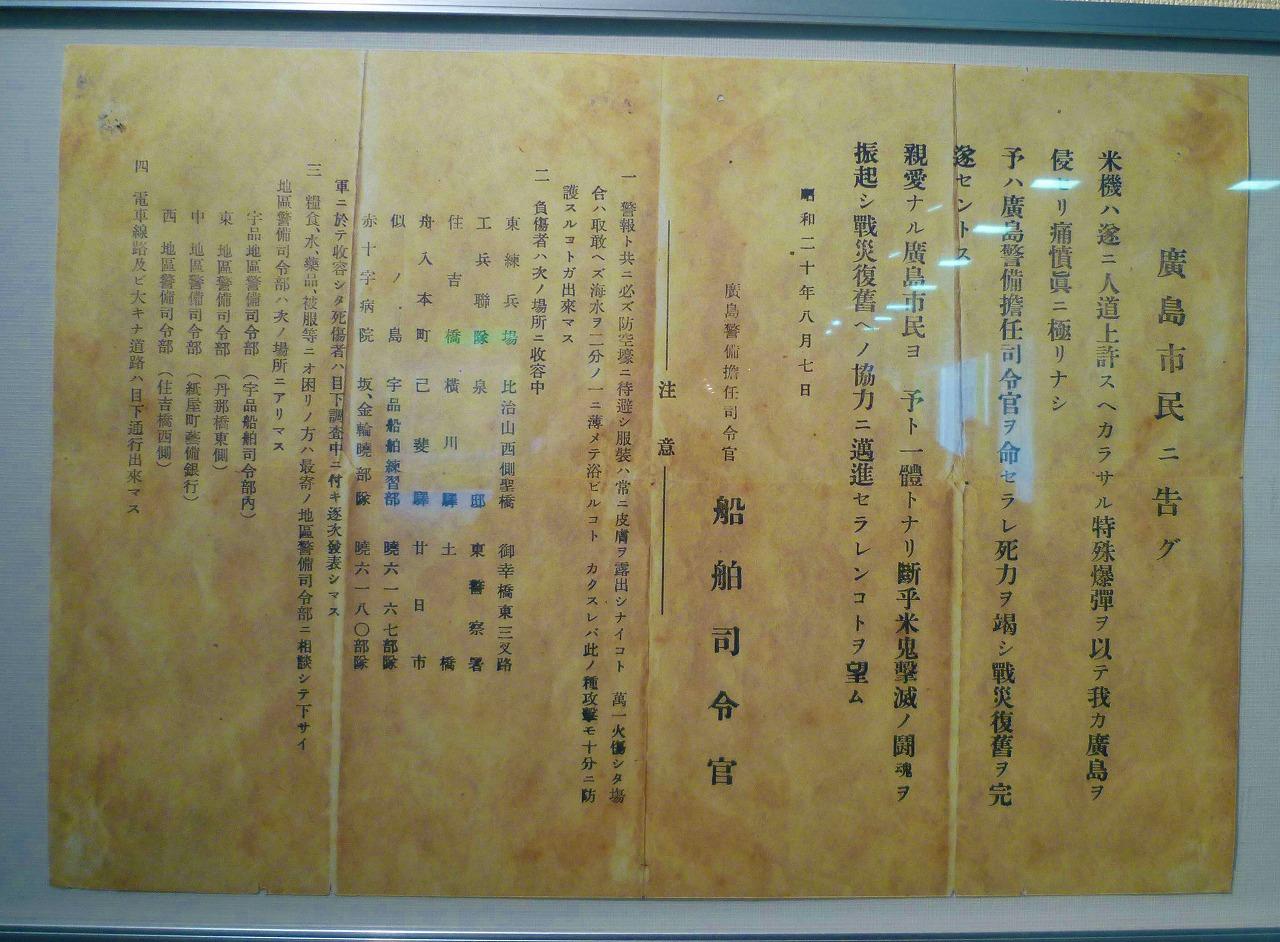 廣島市民ニ告グ
米機ハ遂ニ人道上許スヘカラサル特殊爆彈ヲ以テ我カ廣島ヲ
侵セリ痛憤眞ニ極リナシ
予ハ廣島警備擔任司令官ヲ命セラレ死力ヲ竭シ戰災復舊ヲ完
遂セントス
親愛ナル廣島市民ヨ 予ト一體トナリ斷乎米鬼擊滅ノ鬪魂ヲ
振起シ戰災復舊ヘノ協力ニ邁進セラレンコトヲ望ム
昭和二十年八月七日
廣島警備擔任司令官 船舶司令官
注意
一 警報ト共ニ必ズ防空壕ニ待避シ服裝ハ常ニ皮膚ヲ露出シナイコト 萬一火傷シタ場
合ハ取敢ヘズ海水ヲ二分ノ一ニ薄メテ浴ビルコト カクスレバ此ノ種攻擊モ十分ニ防
護スルコトガ出來マス
二 負傷者ハ次ノ場所ニ收容中
東練兵場 比治山西側聖橋 御幸橋東三叉路
工兵聯隊 泉邸 東警察署
住吉橋 橫川驛 土橋
舟入本町 己斐驛 廿日市
似ノ島 宇品船舶練習部 曉六一六七部隊
赤十字病院 坂、金輪曉部隊 曉六一八〇部隊
軍ニ於テ收容シタ死傷者ハ目下調査中ニ付キ逐次發表シマス
三 糧食、水、藥品、被服等ニオ困リノ方ハ最寄ノ地區警備司令部ニ相談シテ下サイ
地區警備司令部ハ次ノ場所ニアリマス
宇品地區警備司令部（宇品船舶司令部內）
東 地區警備司令部（丹那橋東側）
中 地區警備司令部（紙屋町藝備銀行）
西 地區警備司令部（住吉橋西側）
四 電車線路及ビ大キナ道路ハ目下通行出來マス